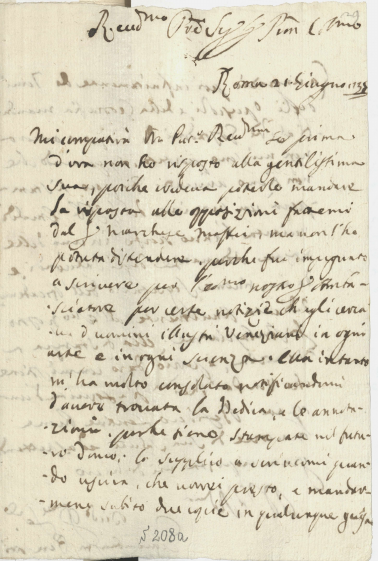 Roma 21 Giugno 173
Mi compatirà Vra Pat. Revd.ma se prima
d'ora non ho risposto alla gentilissima
sua, perche credeva poterle mandare
la risposta alle opposizioni fattemi
dal Sr. Marchese Maffei, ma non l'ho
potuta distendere, perche fui impegnato
a scrivere per l' nostro Sr. Amba-
sciatore per certe notizie ch'egli
d'uomini illustri Veneziani in ogni
arte e in ogni scienza. Ella intanto
mi ha molto consolato notificandomi
d'avere trovata la Dedica, e le annota-
zioni, perche siano stampate nel futu-
ro Tomo: la supplico a scrivermi quan-
do uscirà, che vorrei presto, e mandar-
mene subito due copie in qualunque
§ 208a